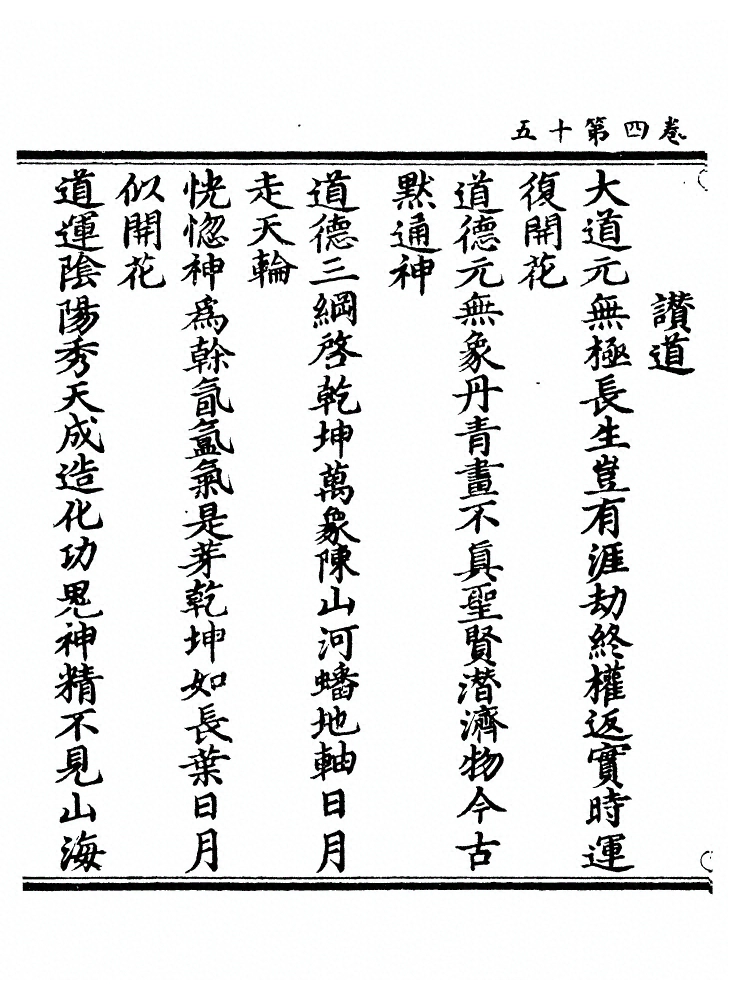 卷四第十五
讚道
大道元無極長生豈有涯劫終權返實時運
復開花
道德元無象丹青畫不真聖賢潛濟物今古
默通神
道德三綱啓乾坤萬象陳山河蟠地軸日月
走天輪
恍惚神爲榦氤氳氣是芽乾坤如長葉日月
似開花
道運陰陽秀天成造化功鬼神精不見山海